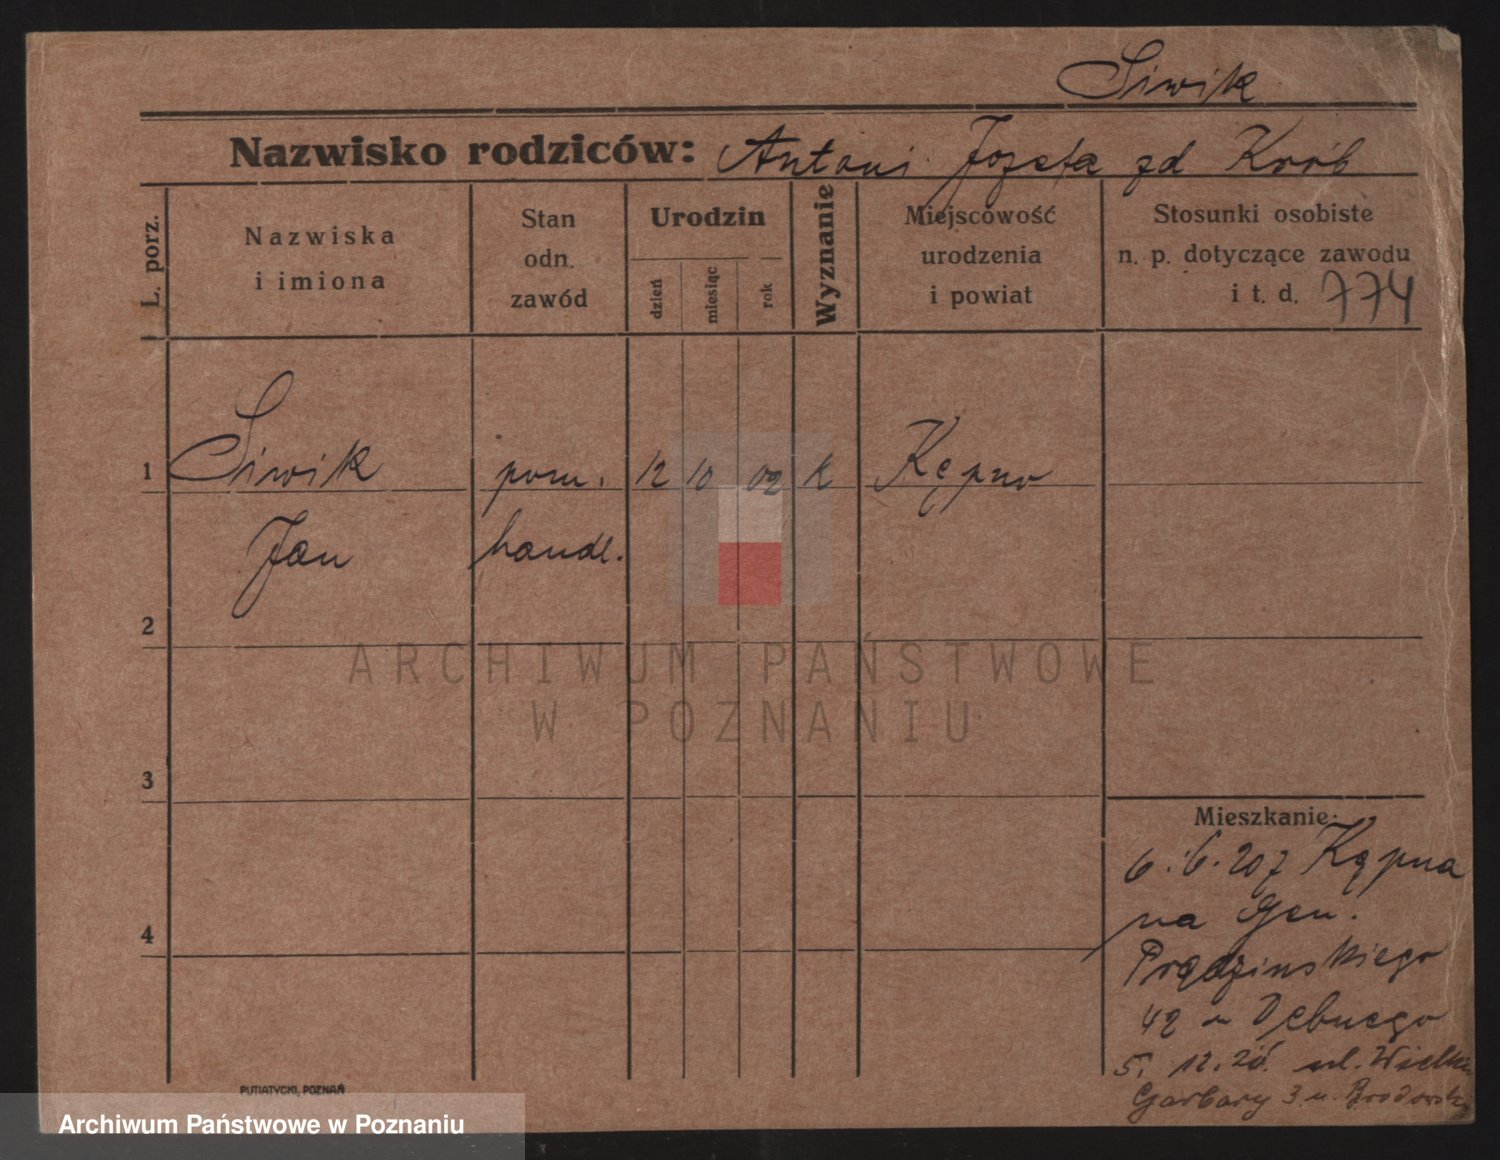 Siwik
Nazwisko rodziców: Antoni Józefa zd Król
L. porz.
Nazwiska
i imiona
Stan
odn.
zawód
Urodzin
dzień
miesiąc
rok
Wyznanie
Miejscowość
urodzenia
i powiat
Stosunki osobiste
n. p. dotyczące zawodu
i t. d. 774
1 Siwik pom. 12 10 02 k Kępno
Jan handl.
2
ARCHIWUM PAŃSTWOWE
W POZNANIU
3
Mieszkanie:
6. 6. 20 z Kępna
na Gen.
4
Prądzinskiego
42 u Dębnego
5. 12. 20. ul. Wielkie
Garbary 3 u.
PUTIATYCKI, POZNAŃ
Archiwum Państwowe w Poznaniu